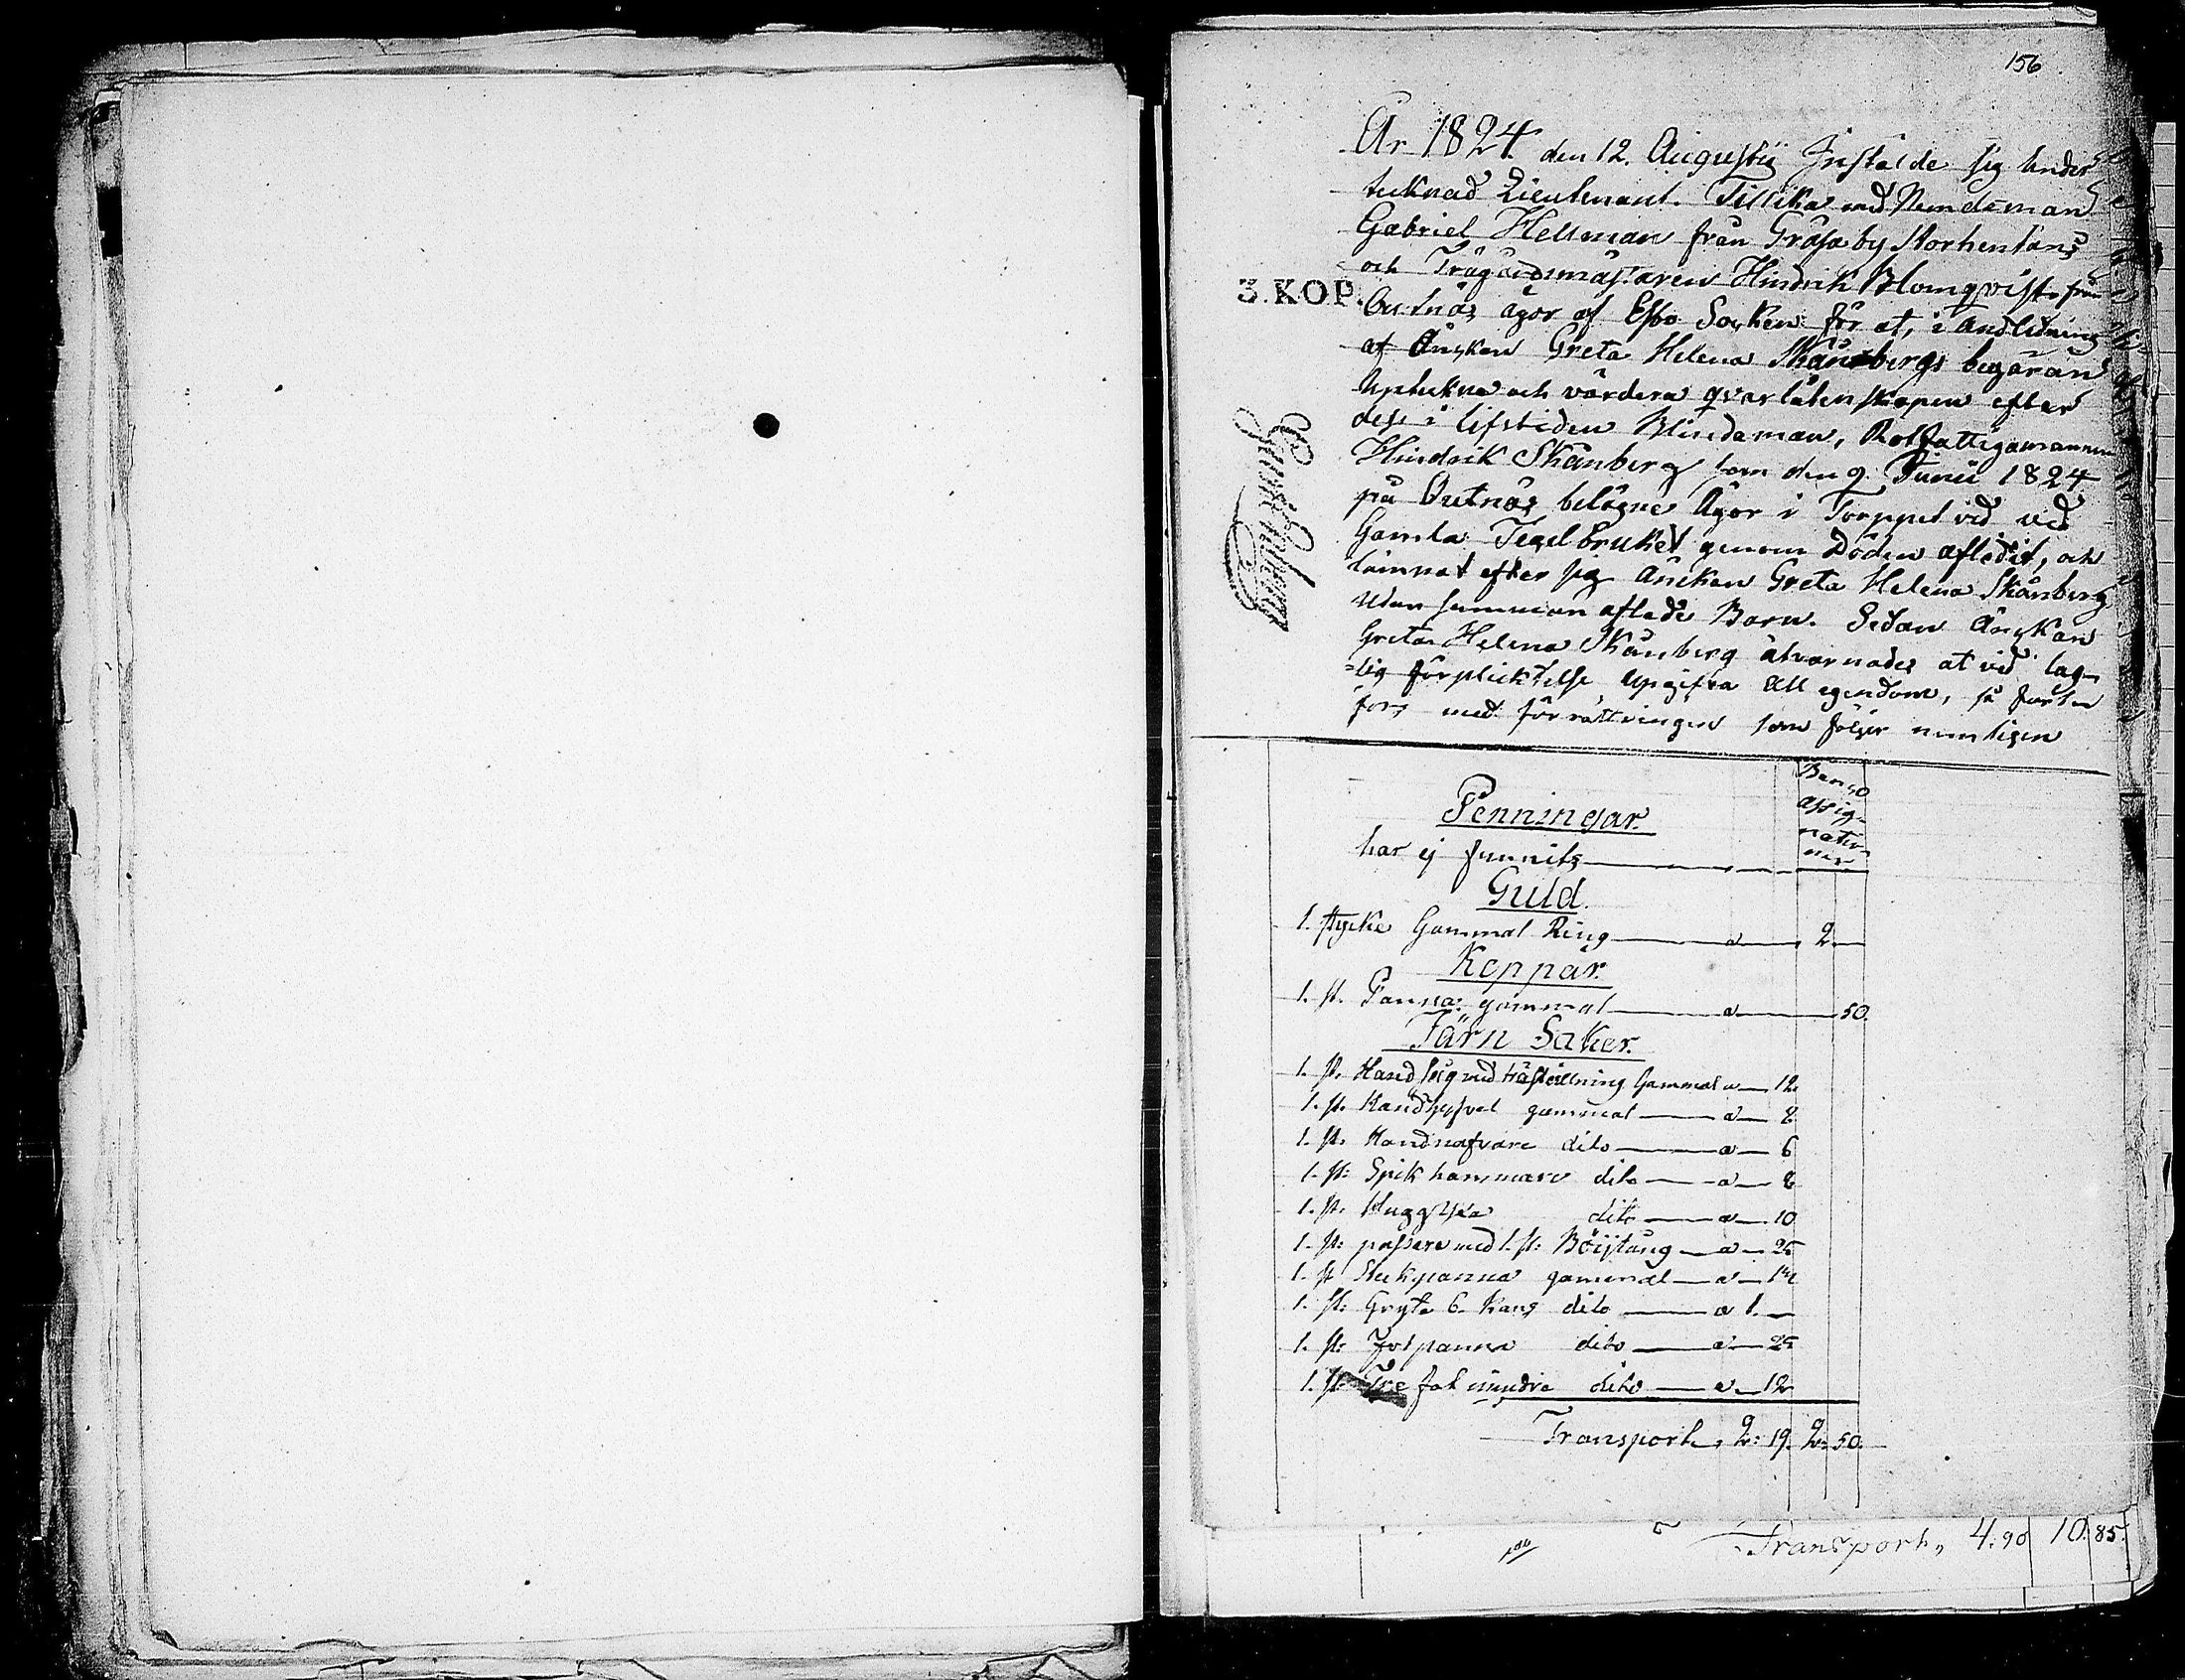 156
År 1824 den 12. Augustii Instälde sig under
tecknad Lieutenant. Tillika med Nemdeman
Gabriel Hellman från Gräsa by Storhentans
och Trägårdsmästaren Hindrich Blomqvist från
3.KOP.
Outnäs ägor af Esbo Socken för at, i andledning
af Änckan Greta Helena Skånbergs begäran
Uptekna och värdera qvarlåtenskapen efter
dess i lifstiden Blindeman, Rotfattigamannen
Hindrik Skånberg som den 9. Junii 1824
på Outnäs belägne Ägor i Torppet vid
Gamla Tegelbruket genom Döden aflidit, och
lämnat efter sig Änckan Greta Helena Skånberg
utan samman aflade Barn. Sedan Änckan
Greta Helena Skånberg åtvarnades at vid lag-
=lig förplicktelse upgifva all egendom, så fortsa
fors med förrättningen som följer nemligen
Banco
assig-
natio-
ner
Penningar.
har ej funnits
Guld.
1. stycke Gammal Ring a 2.
Koppar.
1. st. Panna gammal a 50.
Järn Saker.
1. st. Handsåg med träställning Gammal a 12.
1. st. Handhyfvel gammal a 8
1. st. Handnafvare dito a 6
1. st: Spik hammare dito a 8
1. st. Huggyxa dito a 10
1. st: passare med 1. st: Böijtång a 25
1. st Stekpanna gammal a
1. st: Gryta 6. Kans dito a 1.
1. st: panna dito a 25
1. st: fat mindre dito a 12
Transport, 2: 19. 2: 50.
Transport, 4.90 10.85.